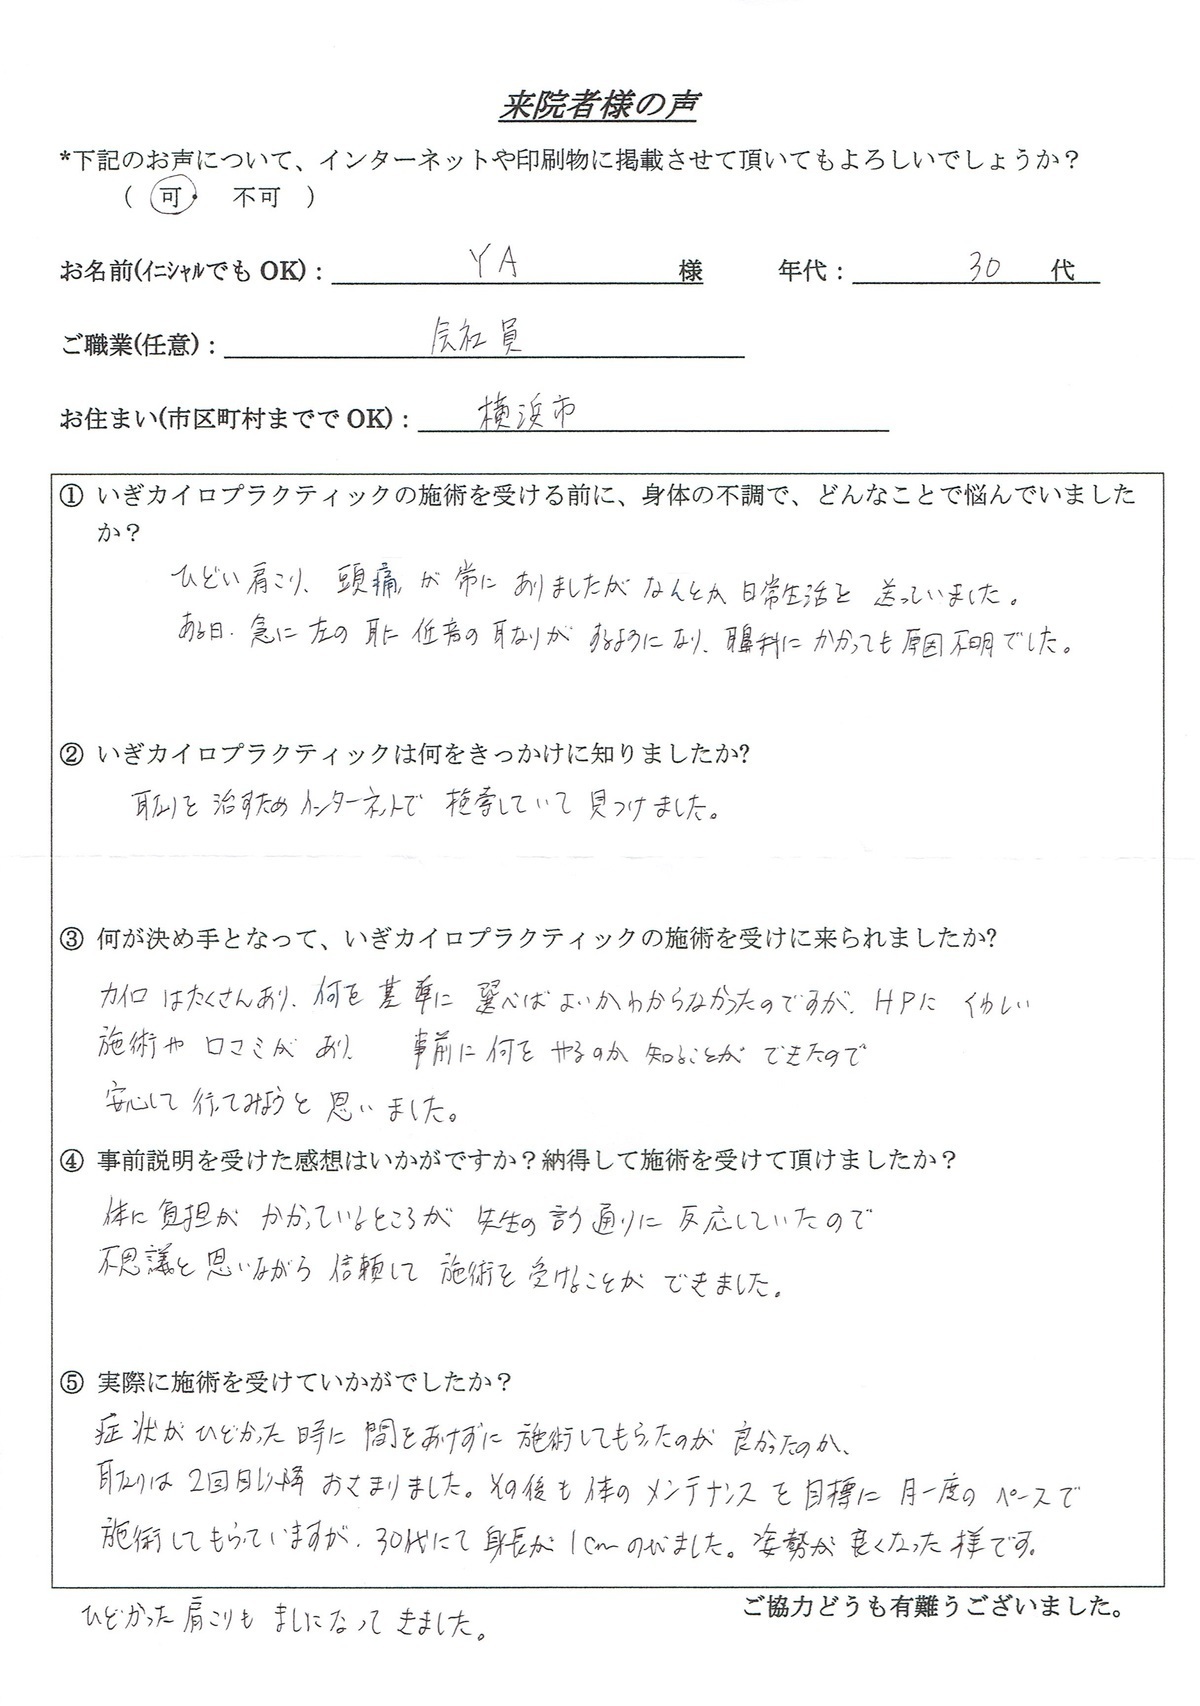 来院者様の声
*下記のお声について、インターネットや印刷物に掲載させて頂いてもよろしいでしょうか？
（ 可・ 不可 ）
お名前(ｲﾆｼｬﾙでもOK)： YA 様 年代： 30 代
ご職業(任意)： 会社員
お住まい(市区町村まででOK)： 横浜市
① いぎカイロプラクティックの施術を受ける前に、身体の不調で、どんなことで悩んでいました
か？
ひどい肩こり、頭痛が常にありましたがなんとか日常生活を送っていました。
ある日、急に左の耳に低音の耳なりがするようになり、耳鼻科にかかっても原因不明でした。
② いぎカイロプラクティックは何をきっかけに知りましたか?
耳なりを治すためインターネットで検索していて見つけました。
③ 何が決め手となって、いぎカイロプラクティックの施術を受けに来られましたか?
カイロはたくさんあり、何を基準に選べばよいかわからなかったのですが、HPにくわしい
施術や口コミがあり、事前に何をやるのか知ることができたので
安心して行ってみようと思いました。
④ 事前説明を受けた感想はいかがですか？納得して施術を受けて頂けましたか？
体に負担がかかっているところが先生の言う通りに反応していたので
不思議と思いながら信頼して施術を受けることができました。
⑤ 実際に施術を受けていかがでしたか？
症状がひどかった時に間をあけずに施術してもらったのが良かったのか、
耳なりは2回目以降おさまりました。その後も体のメンテナンスを目標に月一度のペースで
施術してもらっていますが、30代にて身長が1cmのびました。姿勢が良くなった様です。
ひどかった肩こりもましになってきました。
ご協力どうも有難うございました。